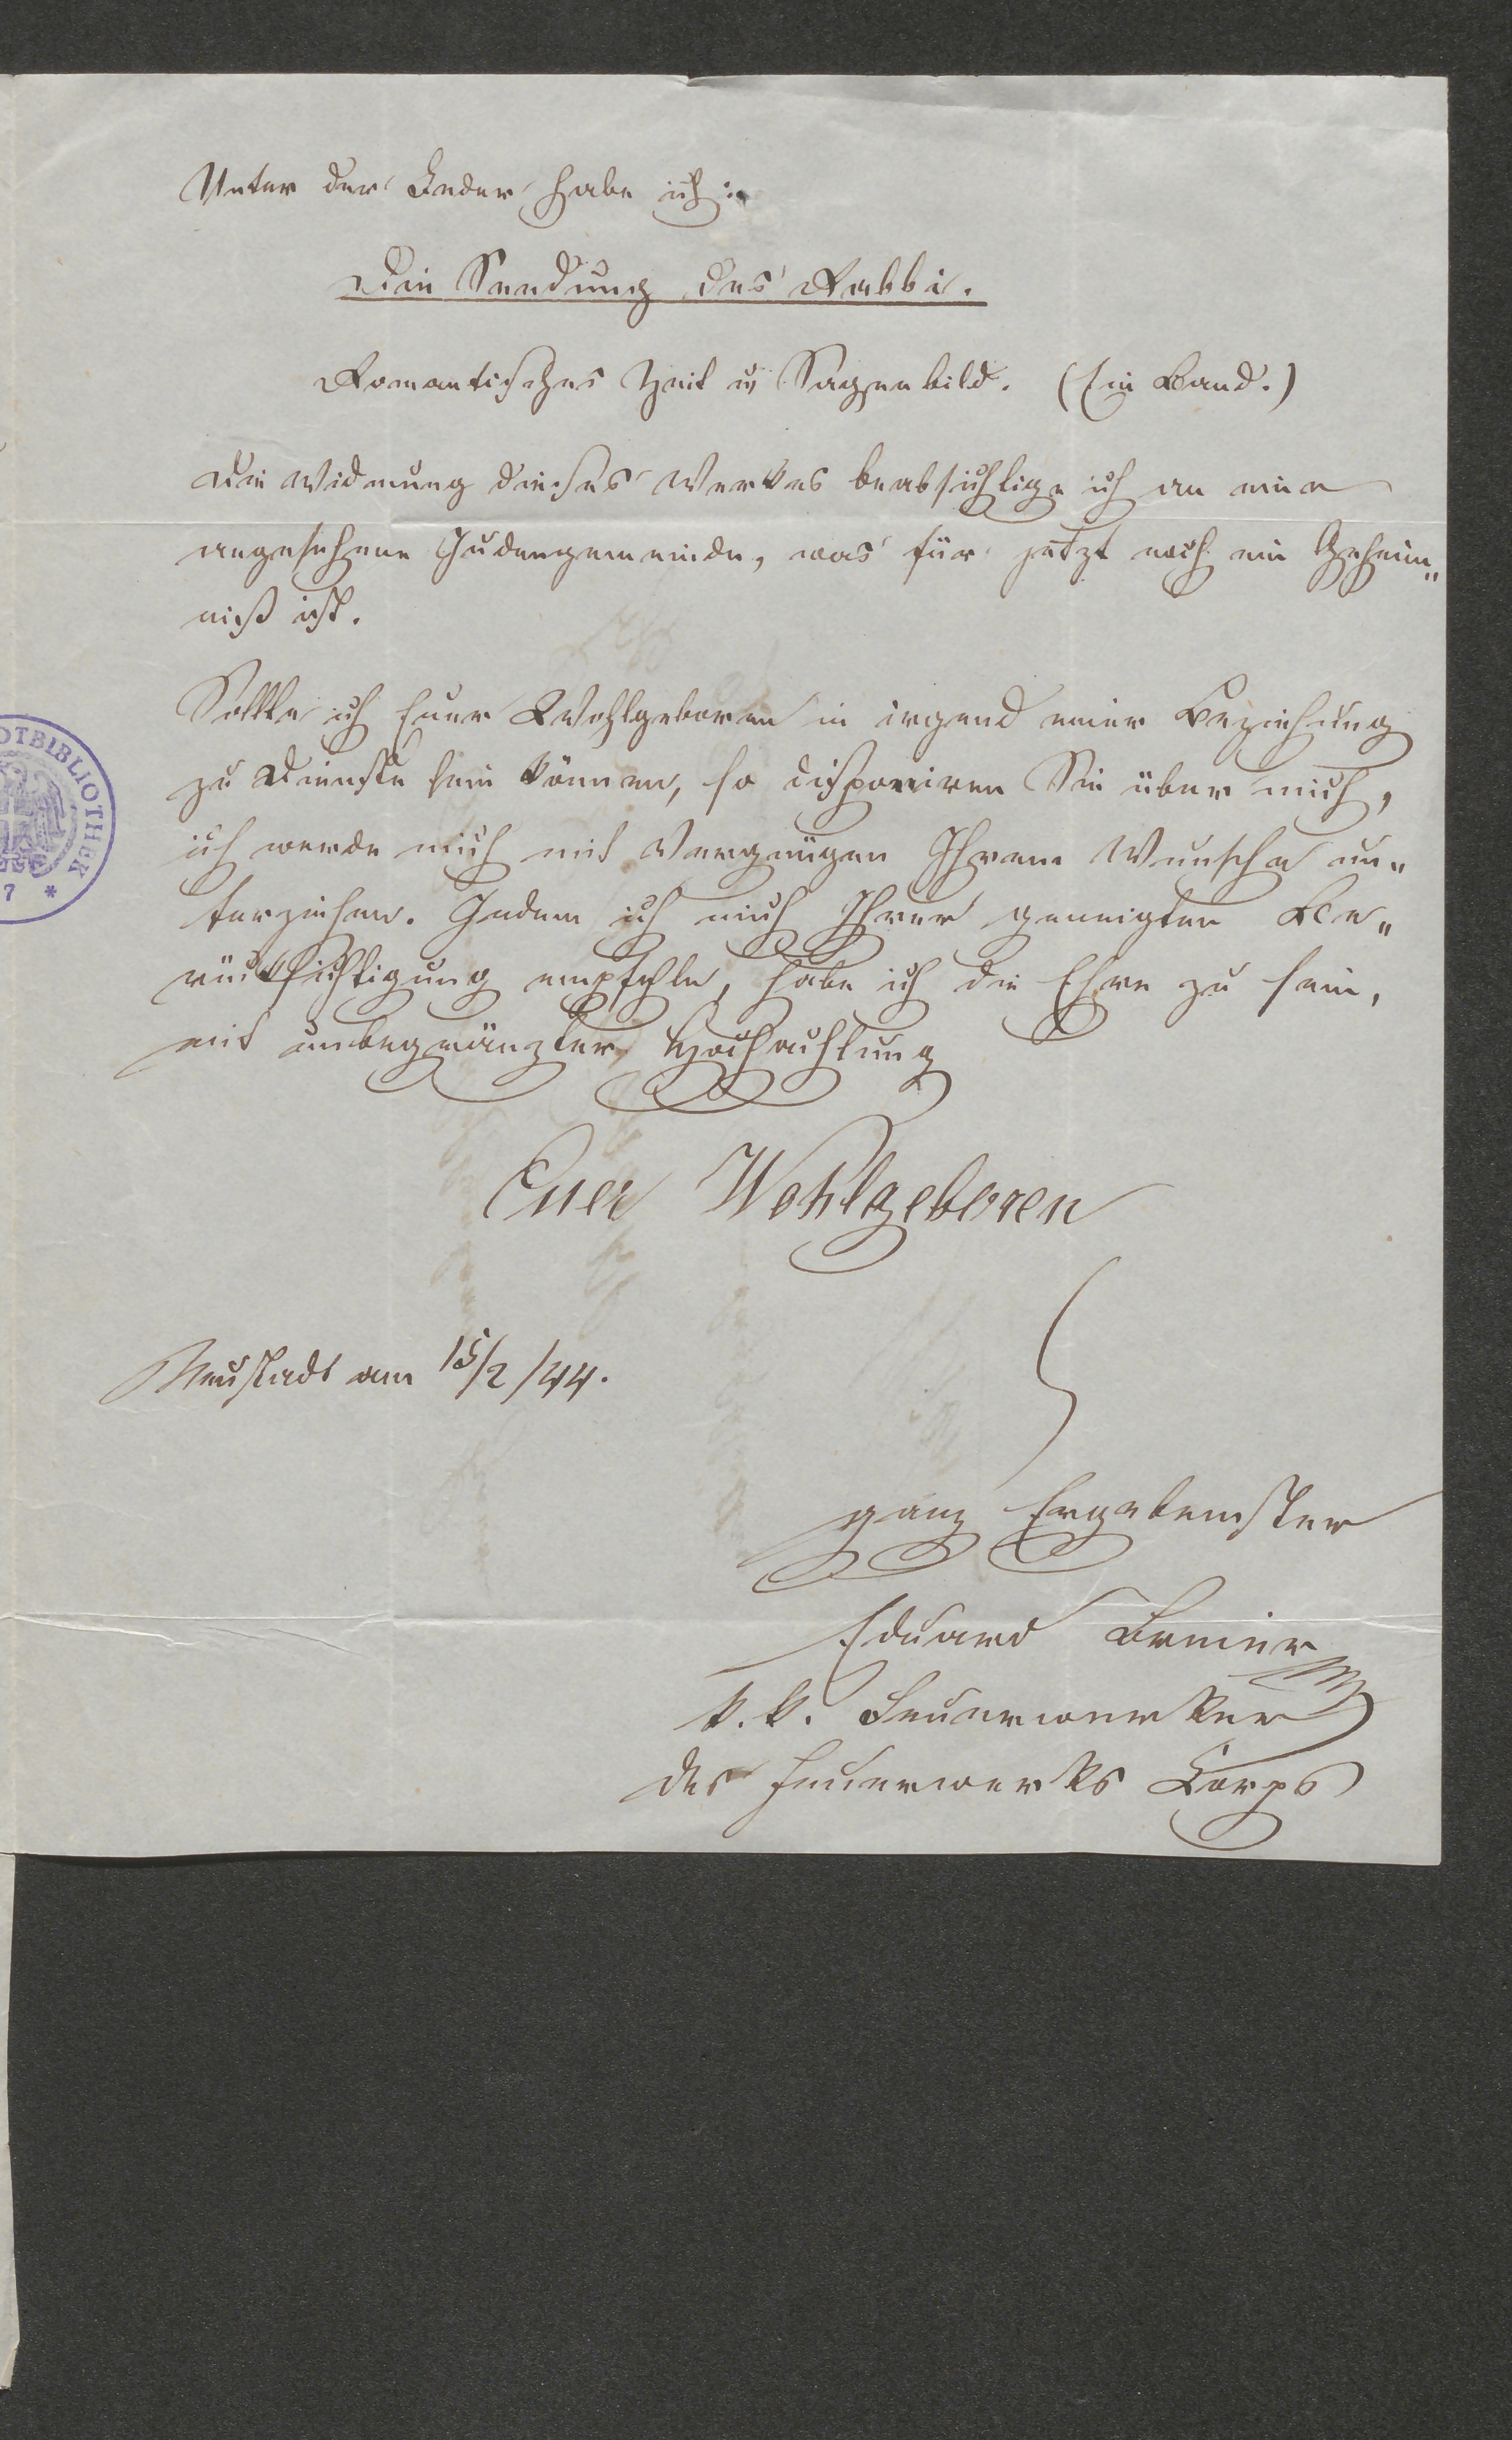 Unter der Feder habe ich:
Die Sendung des Rabbi.
Romantisches Zeit u Sagenbild. (Ein Band.)
Die Widmung dieses Werkes beabsichtige ich an eine
angesehene Judengemeinde, was für jetzt noch ein Geheim„
niß ist.
Sollte ich Euer Wohlgeboren in irgend einer Beziehung
zu Dienste sein können, so disponiren Sie über mich,
ich werde mich mit Vergnügen Ihrem Wunsche un„
terziehen. Indem ich mich Ihrer geneigten Be„
rücksichtigung empfehle, habe ich die Ehre zu sein,
mit unbegränzter Hochachtung
Euer Wohlgeboren
Neustadt am 15/2/44.
ganz Ergebenster
Eduard Breier
k.k. Feuerwerker
des Feuerwerks Corps
OTBIBLIOTHEK
7 *